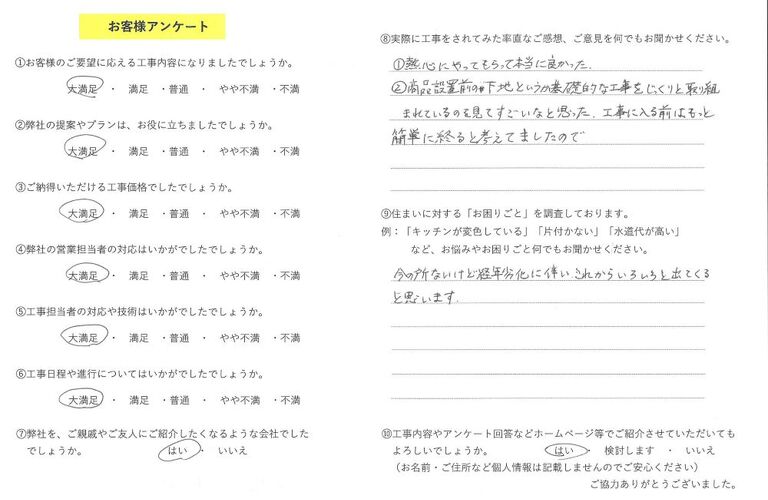 お客様アンケート
①お客様のご要望に応える工事内容になりましたでしょうか。
大満足 ・ 満足 ・普通 ・ やや不満 ・不満
②弊社の提案やプランは、お役に立ちましたでしょうか。
大満足 ・ 満足 ・普通 ・ やや不満 ・不満
③ご納得いただける工事価格でしたでしょうか。
大満足 ・ 満足 ・普通 ・ やや不満 ・不満
④弊社の営業担当者の対応はいかがでしたでしょうか。
大満足 ・ 満足 ・普通 ・ やや不満 ・不満
⑤工事担当者の対応や技術はいかがでしたでしょうか。
大満足 ・ 満足 ・普通 ・ やや不満 ・不満
⑥工事日程や進行についてはいかがでしたでしょうか。
大満足 ・ 満足 ・普通 ・ やや不満 ・不満
⑦弊社を、ご親戚やご友人にご紹介したくなるような会社でした
でしょうか。 はい ・ いいえ
⑧実際に工事をされてみた率直なご感想、ご意見を何でもお聞かせください。
①熱心にやってもらって本当に良かった.
②商品設置前の下地というか基礎的な工事をじっくりと取り組
まれているのを見てすごいなと思った. 工事に入る前はもっと
簡単に終ると考えてましたので
⑨住まいに対する「お困りごと」を調査しております。
例：「キッチンが変色している」「片付かない」「水道代が高い」
など、お悩みやお困りごと何でもお聞かせください。
今の所ないけど経年劣化に伴いこれからいろいろと出てくる
と思います.
⑩工事内容やアンケート回答などホームページ等でご紹介させていただいても
よろしいでしょうか。 はい ・ 検討します ・ いいえ
（お名前・ご住所など個人情報は記載しませんのでご安心ください）
ご協力ありがとうございました。